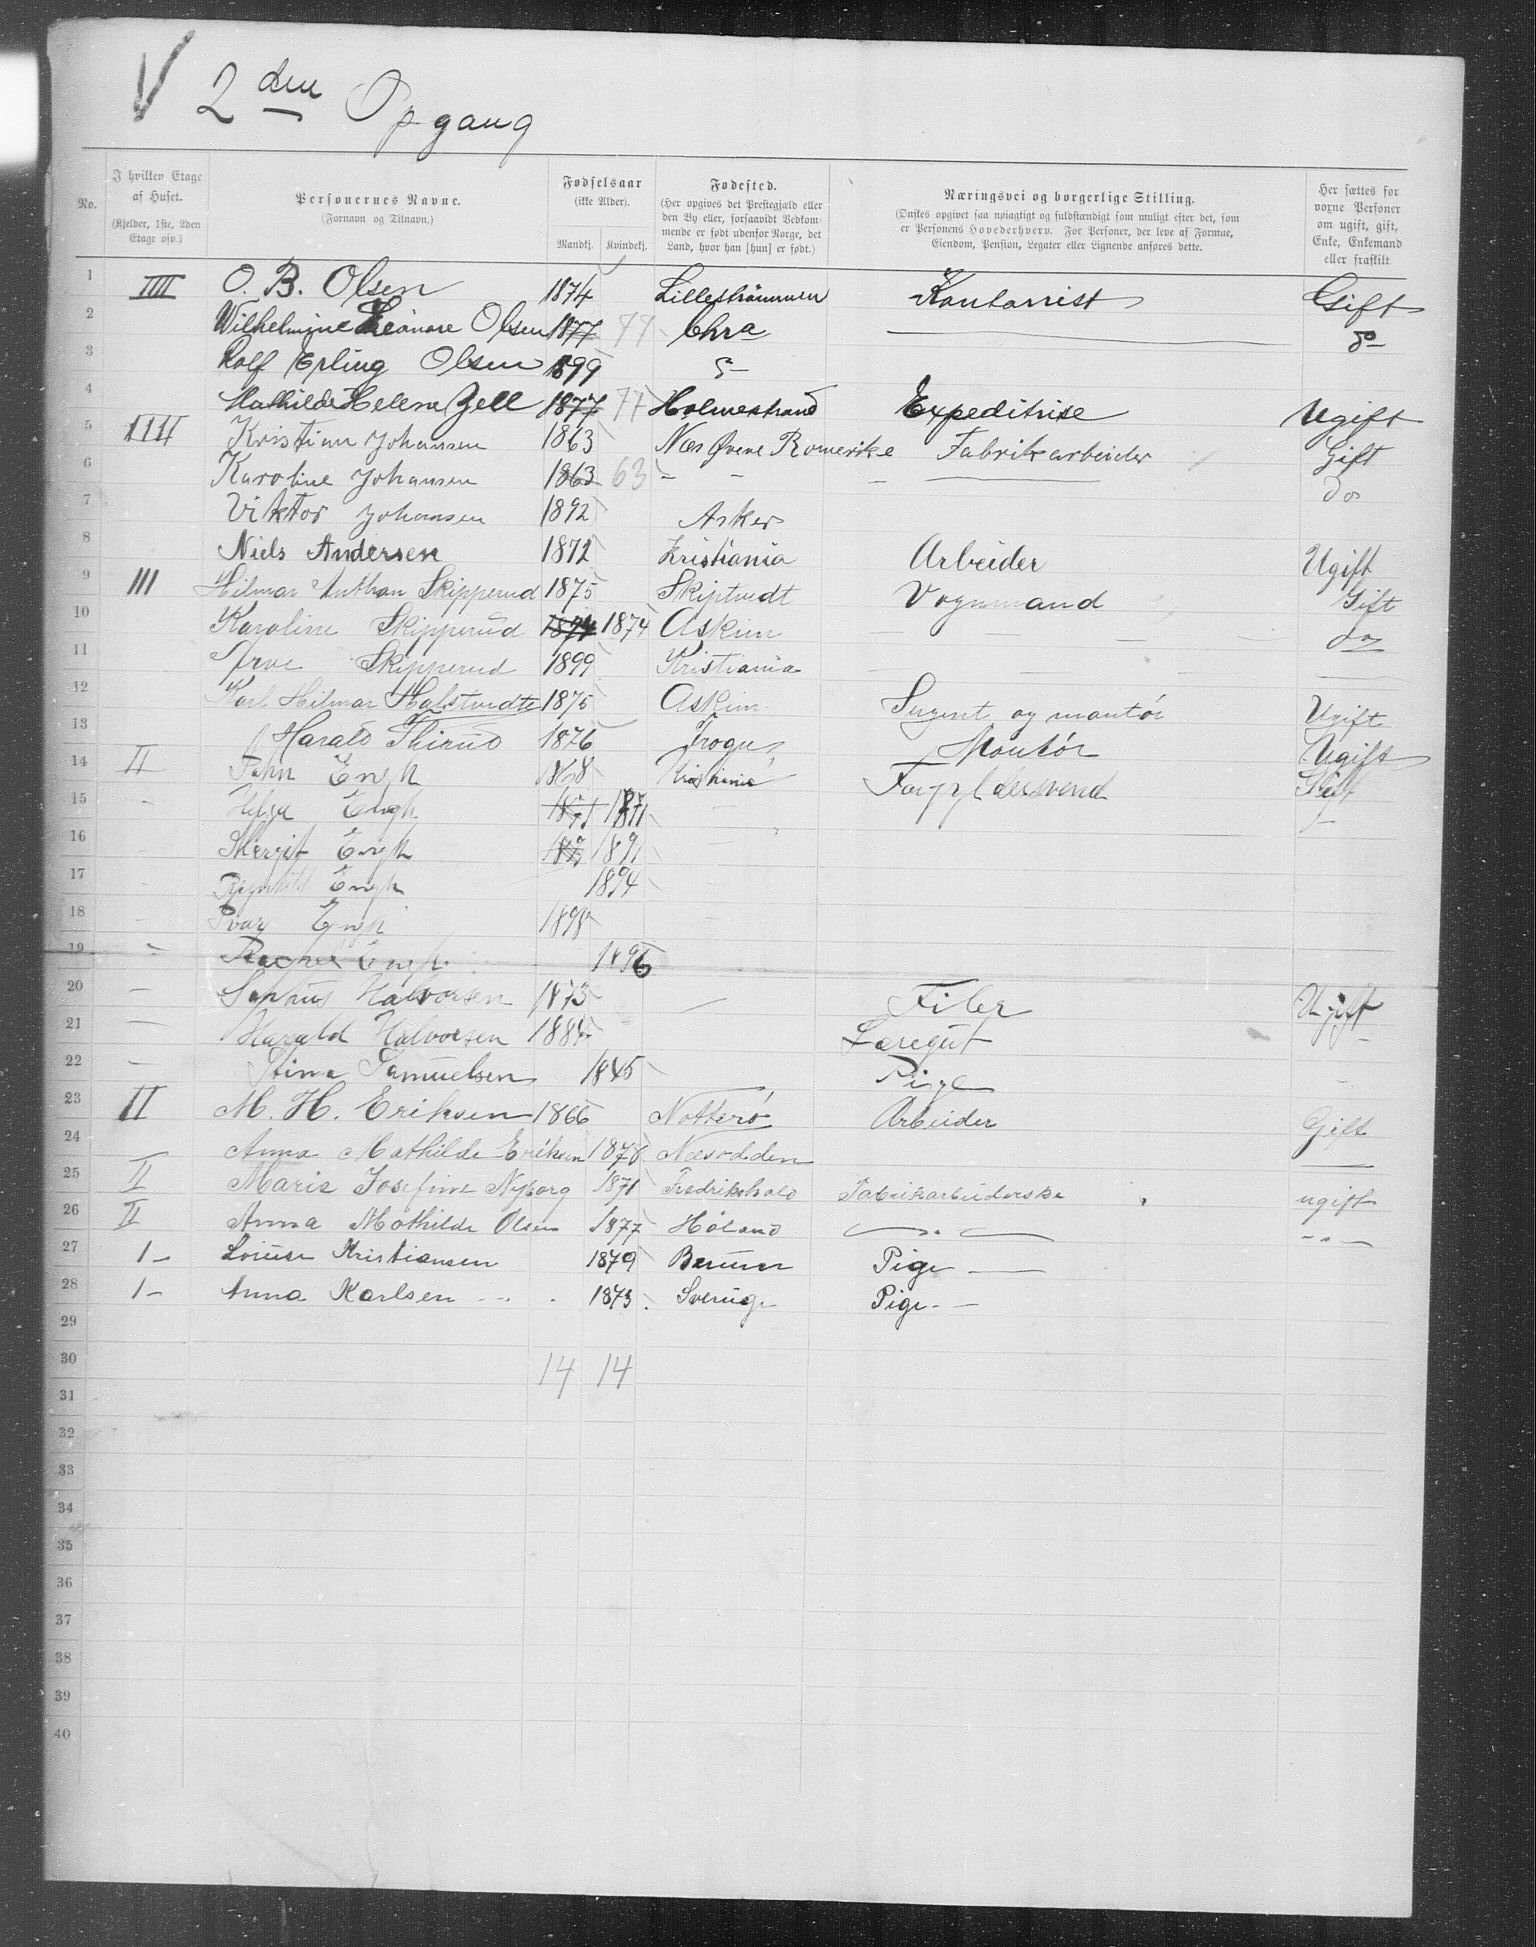 V 2den Opgang
No.
I hvilken Etage af Huset.
(Kjelder, 1ste, 2den Etage osv.)
Personernes Navne.
(Fornavn og Tilnavn.)
Fødselsaar
(ikke Alder).
Mandkj. Kvindekj.
Fødested.
(Her opgives det Prestegjæld eller
den By eller, forsaavidt Vedkom-
mende er født udenfor Norge, det
Land, hvor han [hun] er født.)
Næringsvei og borgerlige Stilling.
(Ønskes opgivet saa nøiagtigt og fuldstændigt som muligt efter det, som
er Personens Hovederhverv. For Personer, der leve af Formue,
Eiendom, Pension, Legater eller Lignende anføres dette.
Her sættes for
voxne Personer
om ugift, gift,
Enke, Enkemand
eller fraskilt
1 IIII O. B. Olsen 1874 Lillestrømmen Kontorist Gift
2 Wilhelmine Leonore Olsen 1877 77 Chra — do
3 Rolf Erling Olsen 1899 "
4 Mathilde Helene Zell 1877 77 Holmestrand Expeditrise Ugift
5 IIII Kristian Johansen 1863 Nes Øvre Romerike Fabrikarbeider Gift
6 Karoline Johansen 1863 63 - - - do
7 Viktor Johansen 1892 Asker
8 Niels Andersen 1872 Kristiania Arbeider Ugift
9 III Hilmar Anthon Skipperud 1875 Skiptvedt Vognmand Gift
10 Karoline Skipperud 1874 1874 Askim — do
11 Arve Skipperud 1899 Kristiania
12 Karl Hilmar Halstvedt 1875 Askim og montør Ugift
13 Harald Thirud 1876 Frogn Montør Ugift
14 II John Engh 1868 Kristiania Forgyldersvend Gift
15 - Helga Engh 1871 1871
16 Margit Engh 1891
17 Engh 1894
18 - Ivar Engh 1898
19 - Ragnhl Engh 1896
20 - Sophus Halvorsen 1873 Filer Ugift
21 - Harald Halvorsen 1884 Læregut -
22 - Stina Samuelsen 1845 Pige
23 II M. H. Eriksen 1866 Nøtterø Arbeider Gift
24 Anna Mathilde Eriksen 1878 Nesodden —
25 II Marie Josefine Nyborg 1871 Fredrikshald Fabrikarbeiderske ugift
26 II Anna Mathilde Olsen 1877 Høland — " — - " -
27 1- Louise Kristiansen 1879 Berum Pige —
28 1- Anna Karlsen 1873 Sverige Pige —
29
30 14 14
31
32
33
34
35
36
37
38
39
40